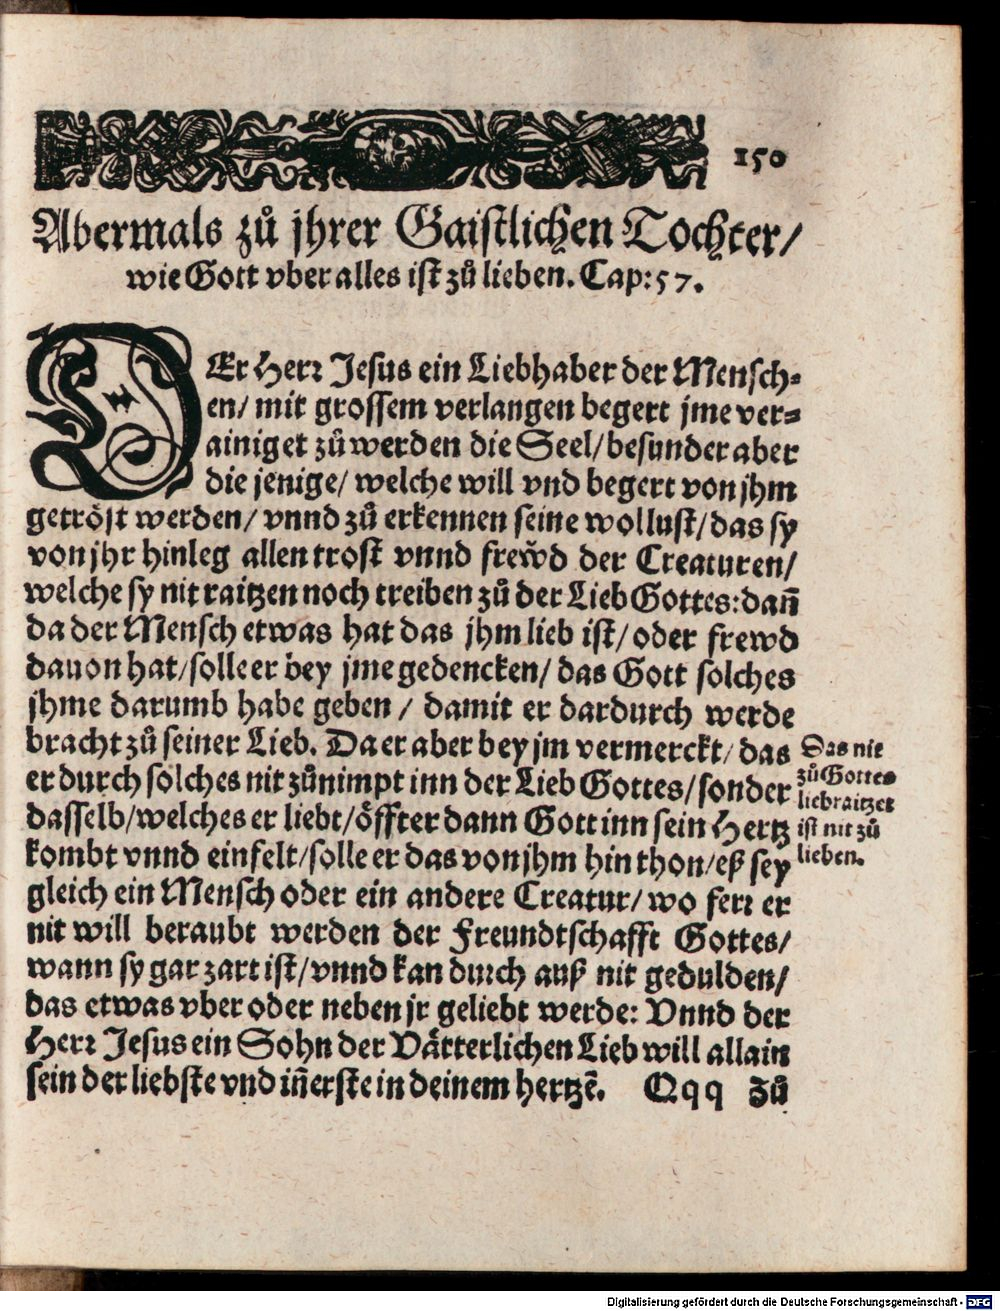 150
Abermals zů jhrer Gaistlichen Tochter/
wie Gott vber alles ist zů lieben. Cap: 57.
DEr Herr Jesus ein Liebhaber der Mensch-
en/ mit grossem verlangen begert jme ver-
ainiget zů werden die Seel/ besunder aber
die jenige/ welche will vnd begert von jhm
getröst werden/ vnnd zů erkennen seine wollust/ das sy
von jhr hinleg allen trost vnnd frewd der Creaturen/
welche sy nit raitzen noch treiben zů der Lieb Gottes: dañ
da der Mensch etwas hat das jhm lieb ist/ oder frewd
dauon hat/ solle er bey jme gedencken/ das Gott solches
jhme darumb habe geben / damit er dardurch werde
bracht zů seiner Lieb. Da er aber bey jm vermerckt/ das
er durch solches nit zůnimpt inn der Lieb Gottes/ sonder
dasselb/ welches er liebt/ öffter dann Gott inn sein Hertz
kombt vnnd einfelt/ solle er das von jhm hin thon/ eß sey
gleich ein Mensch oder ein andere Creatur/ wo ferr er
nit will beraubt werden der Freundtschafft Gottes/
wann sy gar zart ist/ vnnd kan durch auß nit gedulden/
das etwas vber oder neben jr geliebt werde: Vnnd der
Herr Jesus ein Sohn der Vätterlichen Lieb will allain
sein der liebste vnd iñerste in deinem hertzẽ. Qqq zů
Das nit
zů Gottes
lieb raitzet
ist nit zů
lieben.
Digitalisierung gefördert durch die Deutsche Forschungsgemeinschaft - DFG